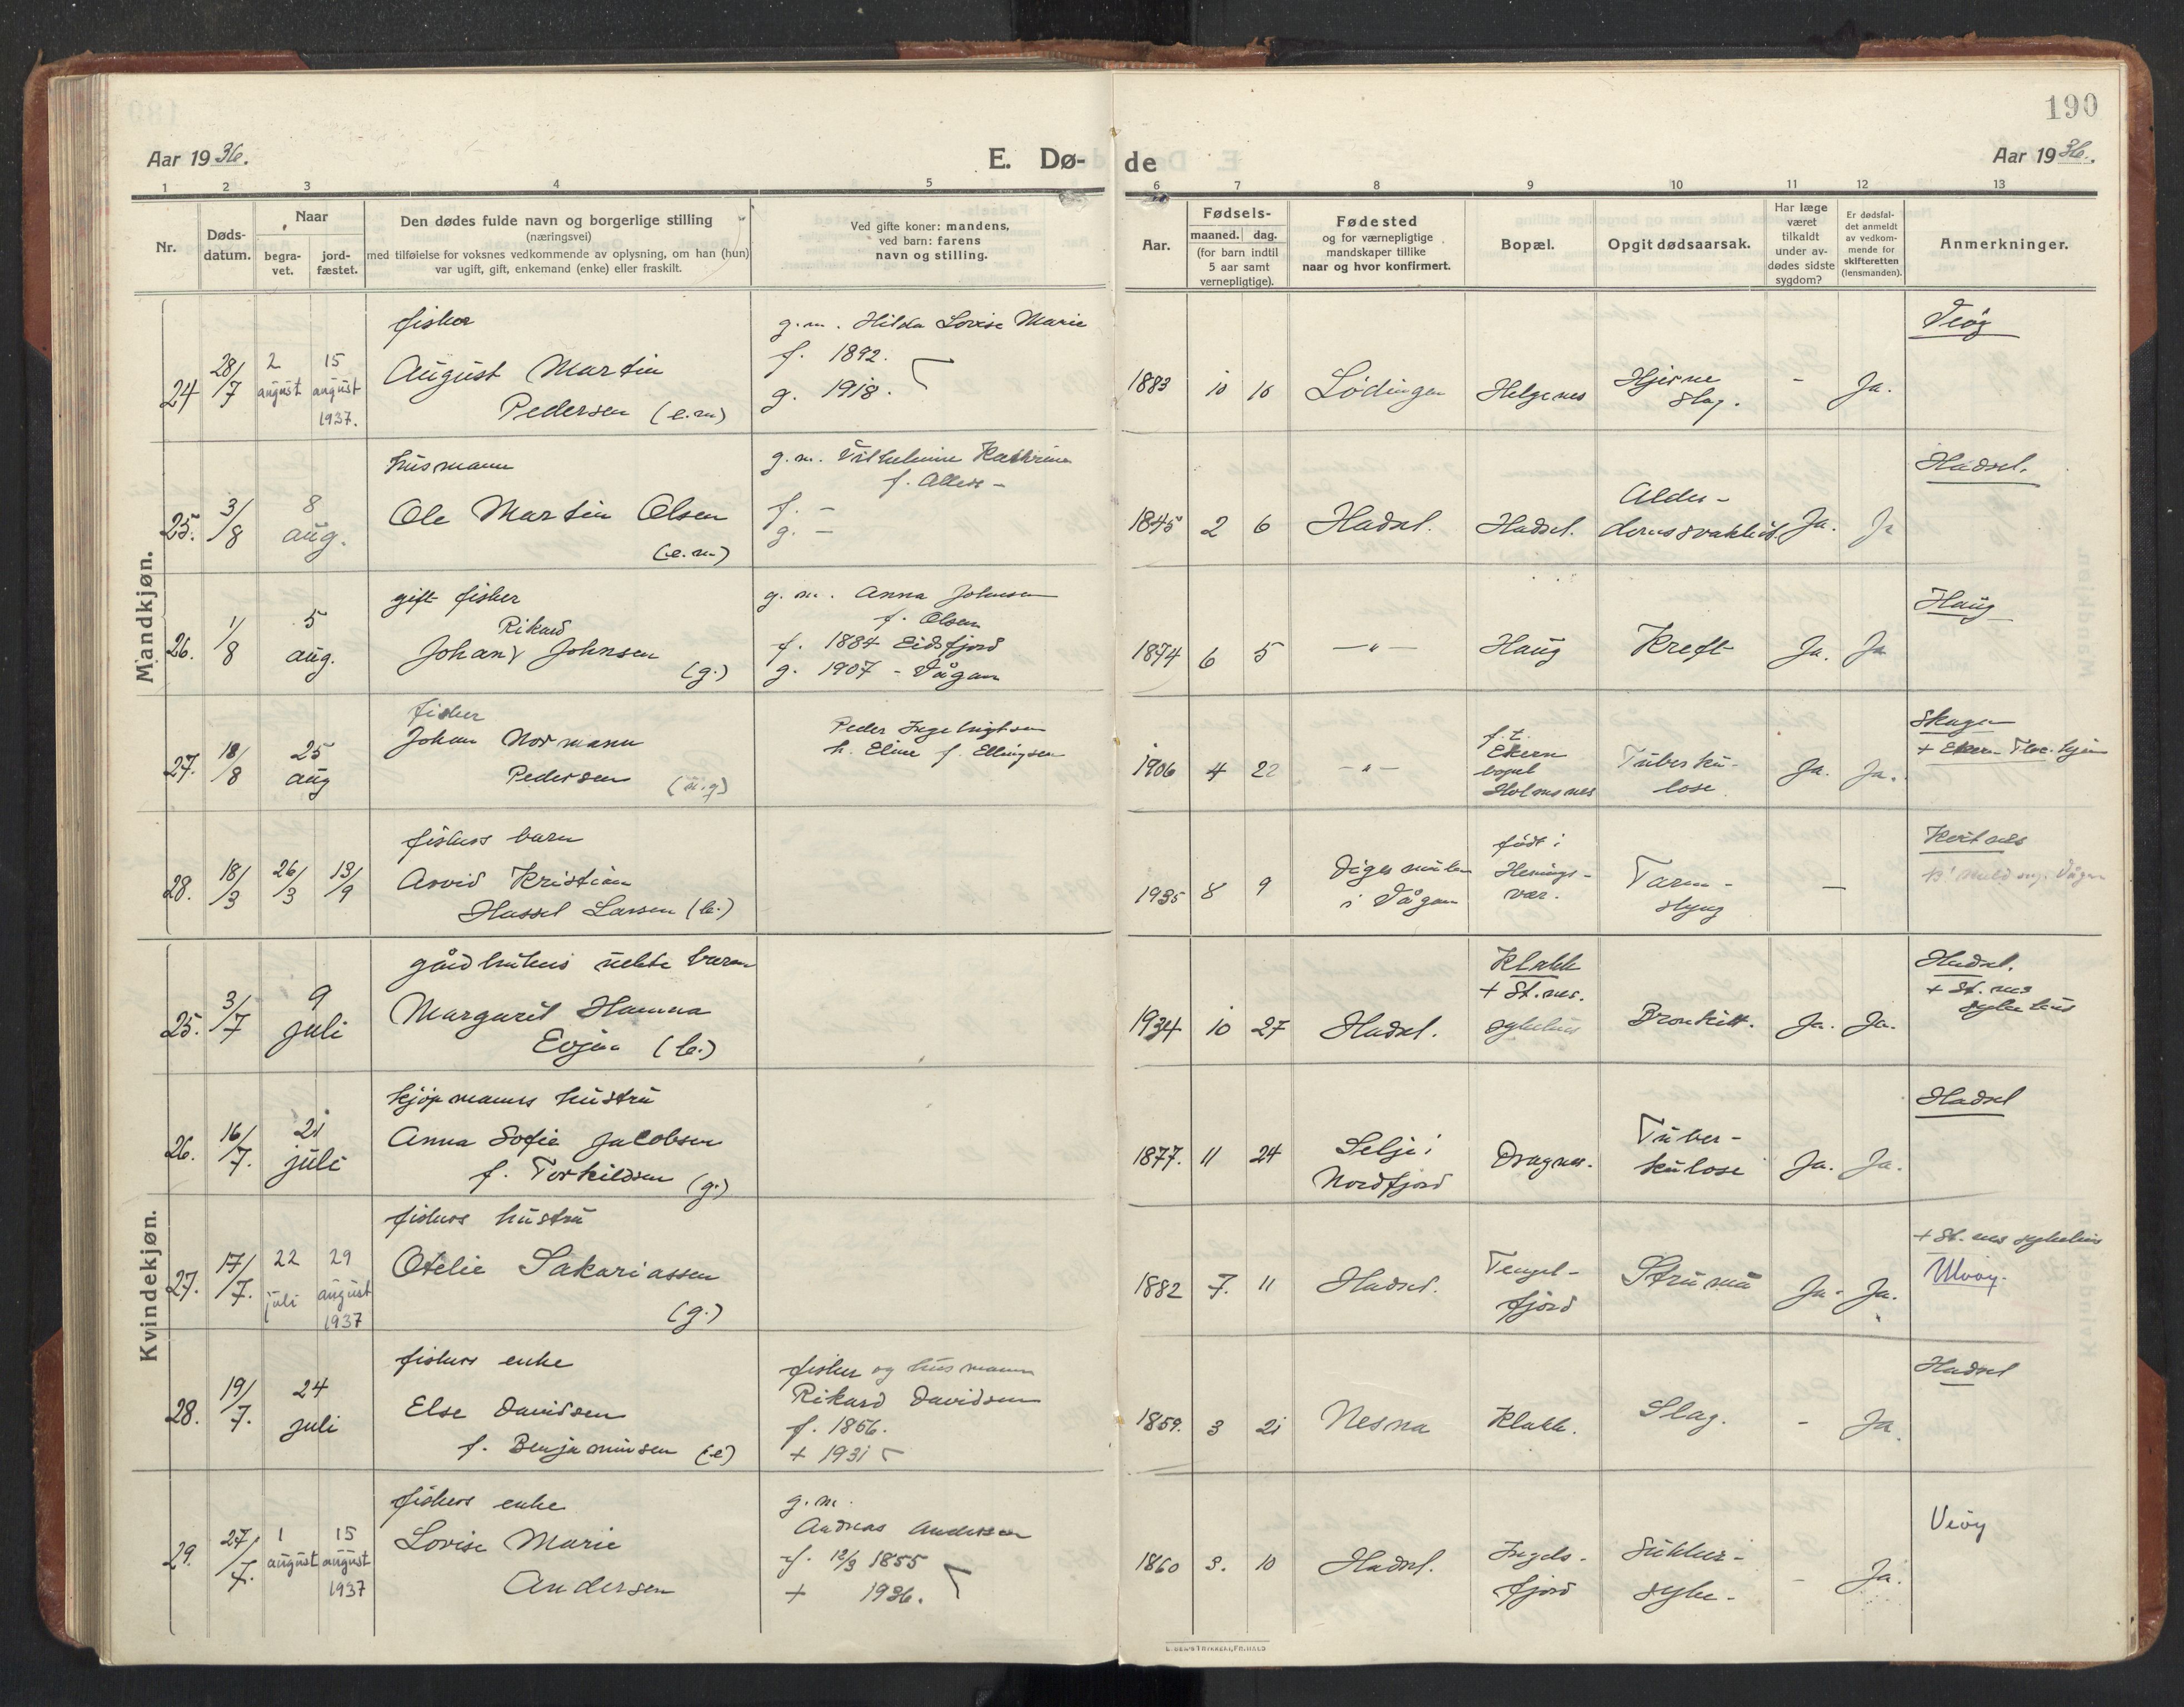 190
Aar 1936.
E. Dø-
de
Aar 1936.
1 2 3 4 5 6 7 8 9 10 11 12 13
Nr.
Døds-
datum.
Naar
begra-
vet.
jord-
fæstet.
Den dødes fulde navn og borgerlige stilling
(næringsvei)
med tilføielse for voksnes vedkommende av oplysning, om han (hun)
var ugift, gift, enkemand (enke) eller fraskilt.
Ved gifte koner: mandens,
ved barn: farens
navn og stilling.
Aar.
Fødsels-
maaned. dag.
(for barn indtil
5 aar samt
vernepligtige).
Fødested
og for værnepligtige
mandskaper tillike
naar og hvor konfirmert.
Bopæl.
Opgit dødsaarsak.
Har læge
været
tilkaldt
under av-
dødes sidste
sygdom?
Er dødsfal-
det anmeldt
av vedkom-
mende for
skifteretten
(lensmanden).
Anmerkninger.
Mandkjøn.
24
28/7
2
august
15
august
1937.
fisker
August Martin
Pedersen (e.m)
g.m. Hilda Lovise Marie
f. 1892.
g. 1918.
1883 10 16
Lødingen
Helgenes
Hjerne
slag.
-
Ja.
25.
3/8
8
aug.
husmann
Ole Martin Olsen
(e.m)
g.m. Vilhelmine Kathrine
f. -
g. -
1845 2 6
Hadsel.
Hadsel.
Alder-
domssvakhet.
Ja.
Ja
Hadsel.
26.
1/8
5
aug.
gift fisker
Rikard
Johan Johnsen
(g.)
g.m. Anna Johnsen
f. Olsen
f. 1884 Eidsfjord
g. 1907 - Vågan
1874 6 5
—"—
Haug
Kreft
Ja.
Ja
Haug
27.
18/8
25
aug
fisker
Johan Normann
Pedersen (u.g)
Peder Ingebrigtsen
h. Eline f. Ellingsen
1906 4 22
—"—
f.t.
Ekern
bopel
Holmsnes
Tuberku-
lose.
Ja.
Ja.
Skagen
28.
18/3
26/3
13/9
fiskers barn
Arvid Kristian
Hassel Larsen (b.)
1935 8 9
Digermulen
i Vågan
født i
Hennings-
vær.
Tarm-
slyng
—
Kvitnes
Kvindekjøn.
25.
3/7
9
juli
gårdbrukers uekte barn
Margarit Hanna
Evjen (b.)
1934 10 27
Hadsel.
Klakk
+ St.nes.
sykehus
Bronkitt.
Ja.
Ja.
Hadsel.
+ St. nes
sykehus
26.
16/7.
21
juli
kjøpmanns hustru
Anna Sofie Jacobsen
f. Torkildsen (g.)
1877. 11 24
Selje i
Nordfjord
Dragnes.
Tuber-
kulose
Ja.
Ja.
Hadsel
27.
17/7.
22
juli
29
august
1937
fiskers hustru
Otelie Sakariassen
(g.)
1882 7. 11
Hadsel.
Tengel-
fjord
Struma
Ja.
Ja.
+ St. nes sykehus
Ulvøy.
28.
19/7.
24
juli
fiskers enke
Else Davidsen
f. Benjaminsen (e)
fisker og husmann
Rikard Davidsen
f. 1866.
+ 1931
1859. 3 21
Nesna
Klakk.
Slag.
-
Ja.
Hadsel
29.
27/7.
1
august
15
august
1937
fiskers enke
Lovise Marie
Andersen
g.m.
Andreas Andersen
f. 12/9 1855
+ 1936.
1860 3. 10
Hadsel.
Ingels-
fjord
Sukker-
syke.
-
Ja.